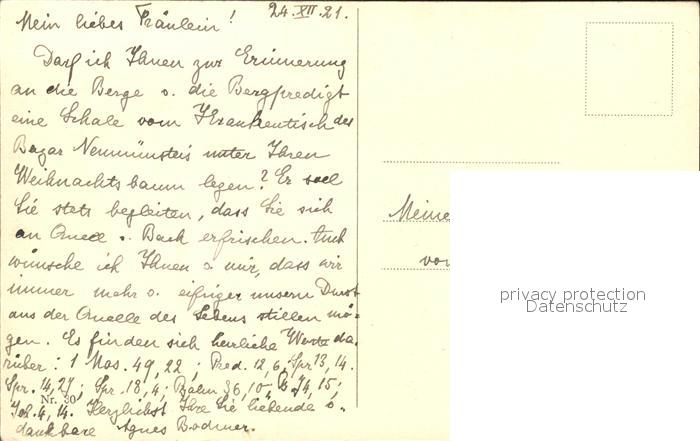 24. XII. 21.
Mein liebes Fräulein!
Darf ich Ihnen zur Erinnerung
an die Berge u. die Bergpredigt
eine Schale vom Krankentisch des
Bazar Neumünsters unter Ihren
Weihnachtsbaum legen? Er soll
Sie stets begleiten, dass Sie sich
an Quell u. Bach erfrischen. Auch
wünsche ich Ihnen u. mir, dass wir
immer mehr u. eifriger unsern Durst
aus der Quelle des Lebens stillen mö-
gen. Es finden sich herrliche Worte da-
rüber: 1 Mos. 49, 22; Pred. 12, 6; Spr 13, 14.
Spr. 14, 27; Spr. 18, 4; Psalm 36, 10, 74, 15;
Nr. 30
Joh. 4, 14. Herzlichst Ihre Sie liebende u.
dankbare Agnes Bodmer.
Meine
von
privacy protection
Datenschutz